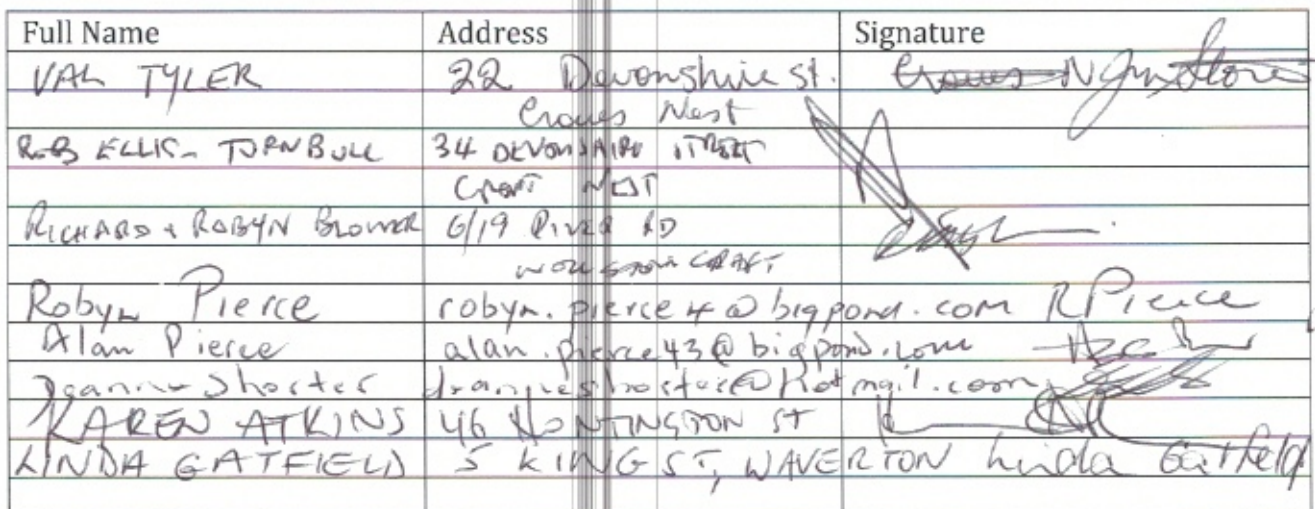 Full Name Address Signature
VAL TYLER 22 Devonshire st.
Crows Nest
ROB ELLIS-TURNBULL 34 DEVONSHIRE STREET
NEST
RICHARD + ROBYN BLOWER 6/19 RIVER RD
WOLLSTONECRAFT
Robyn Pierce robyn.pierce4@bigpond.com RPierce
Alan Pierce alan.pierce43@bigpond.com
Jeanne Shorter jeanneshorter@hotmail.com
KAREN ATKINS 46 HUNTINGTON ST
LINDA GATFIELD 5 KING ST, WAVERTON Linda Gatfield